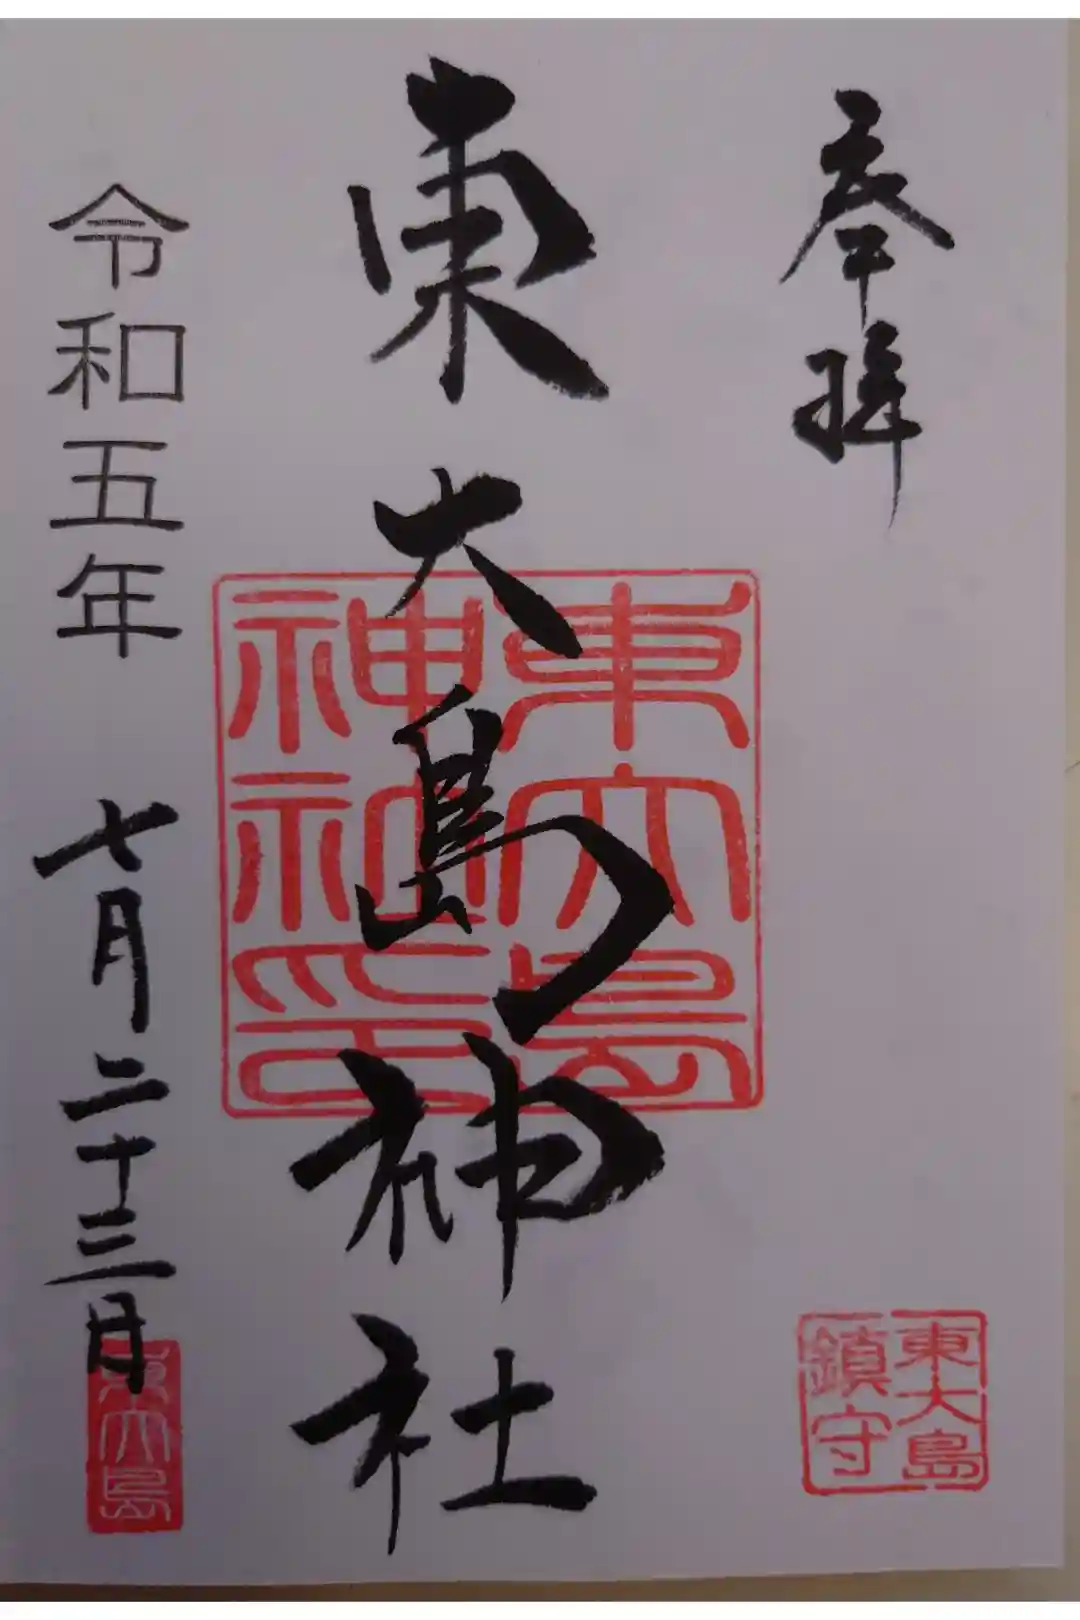 奉拝
東大島
鎮守
東大島神社
東大島
神社印
令和五年 七月二十三日
東大島